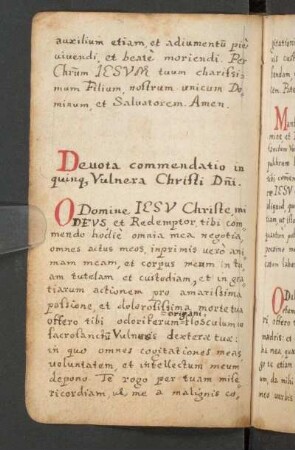 auxilium etiam, et adiumentū piè
viuendi, et beatè moriendi. Per
Chrūm IESVM tuum charissi
mum Filium, nostrum unicum Do,
minum, et Saluatorem. Amen.
Deuota commendatio in
quinq, Vulnera Christi Dñi.
O Domine IESV Christe, mi
DEVS, et Redemptor, tibi com
mendo hodiè omnia mea negotia,
omnes actus meos, inprimis verò ani
mam meam, et corpus meum in tu
am tutelam et custodiam, et in gra
tiarum actionem pro amarissima
passione, et dolorosissima morte tua
offero tibi odoriferum origani flosculum in
sacrosanctū Vulnus dexteræ tuæ:
in quo omnes cogitationes meas
voluntatem, et intellectum meum
depono. Te rogo per tuam mise
ricordiam, ut me a malignis co,